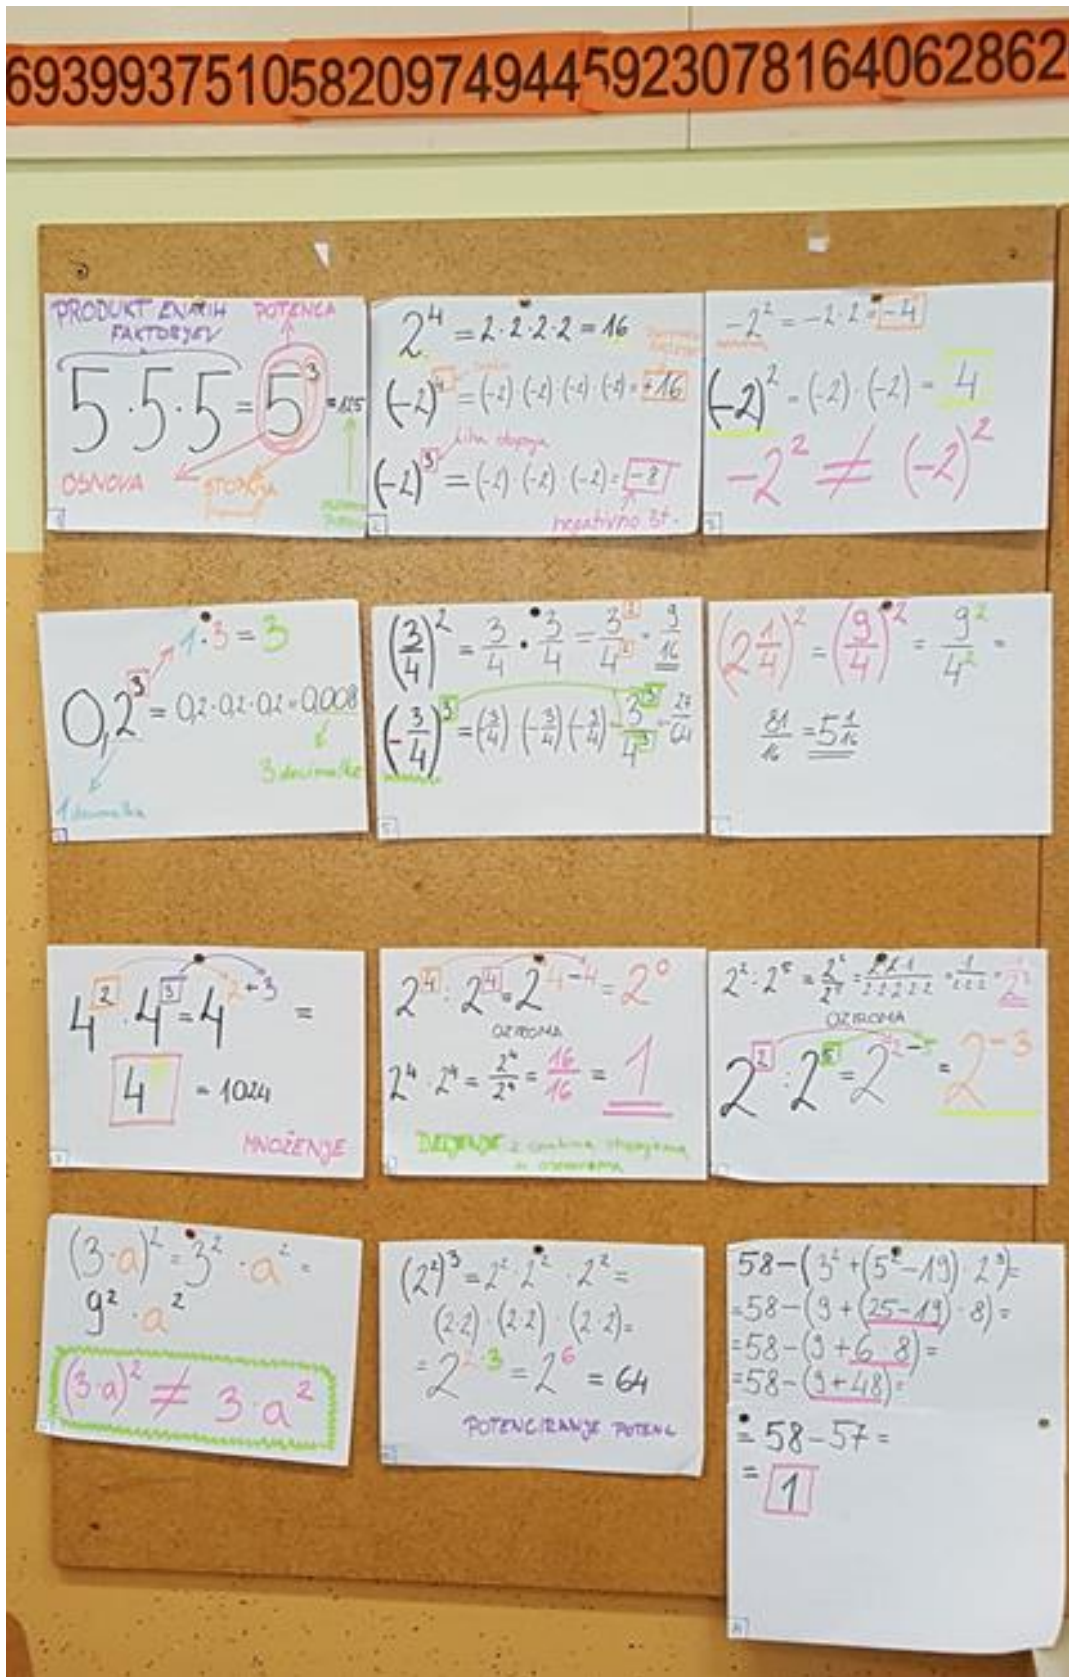 69399375105820974944592307816406286​2
PRODUKT ENAKIH POTENCA
FAKTORJEV
5·5·5 = 5³ = 125
OSNOVA STOPNJA
2⁴ = 2·2·2·2 = 16
(-2)⁴ = (-2)·(-2)·(-2)·(-2) = +16
liha stopnja
(-2)³ = (-2)·(-2)·(-2) = -8
negativno št.
-2² = -2·2 = -4
(-2)² = (-2)·(-2) = 4
-2² ≠ (-2)²
1·3 = 3
0,2³ = 0,2·0,2·0,2 = 0,008
3 decimalke
1 decimalka
(3/4)² = 3/4 · 3/4 = 3²/4² = 9/16
(-3/4)³ = (-3/4) (-3/4) (-3/4) = -3³/4³ = -27/64
(2 1/4)² = (9/4)² = 9²/4² =
81/16 = 5 1/16
4² · 4³ = 4²⁺³ =
4 = 1024
MNOŽENJE
2⁴ : 2⁴ = 2⁴⁻⁴ = 2⁰
OZIROMA
2⁴ : 2⁴ = 2⁴/2⁴ = 16/16 = 1
DELJENJE z enakima stopnjama
in osnovama
2² : 2⁵ = 2²/2⁵ = 2·2·1/2·2·2·2·2 = 1/2·2·2 = 1/2³
OZIROMA
2² : 2⁵ = 2²⁻⁵ = 2⁻³
(3·a)² = 3² · a² =
9² · a²
(3·a)² ≠ 3·a²
(2²)³ = 2² · 2² · 2² =
(2·2) · (2·2) · (2·2) =
= 2²·³ = 2⁶ = 64
POTENCIRANJE POTENC
58-(3²+(5²-19)·2³)=
=58-(9+(25-19)·8)=
=58-(9+6·8)=
=58-(9+48)=
= 58-57 =
= 1